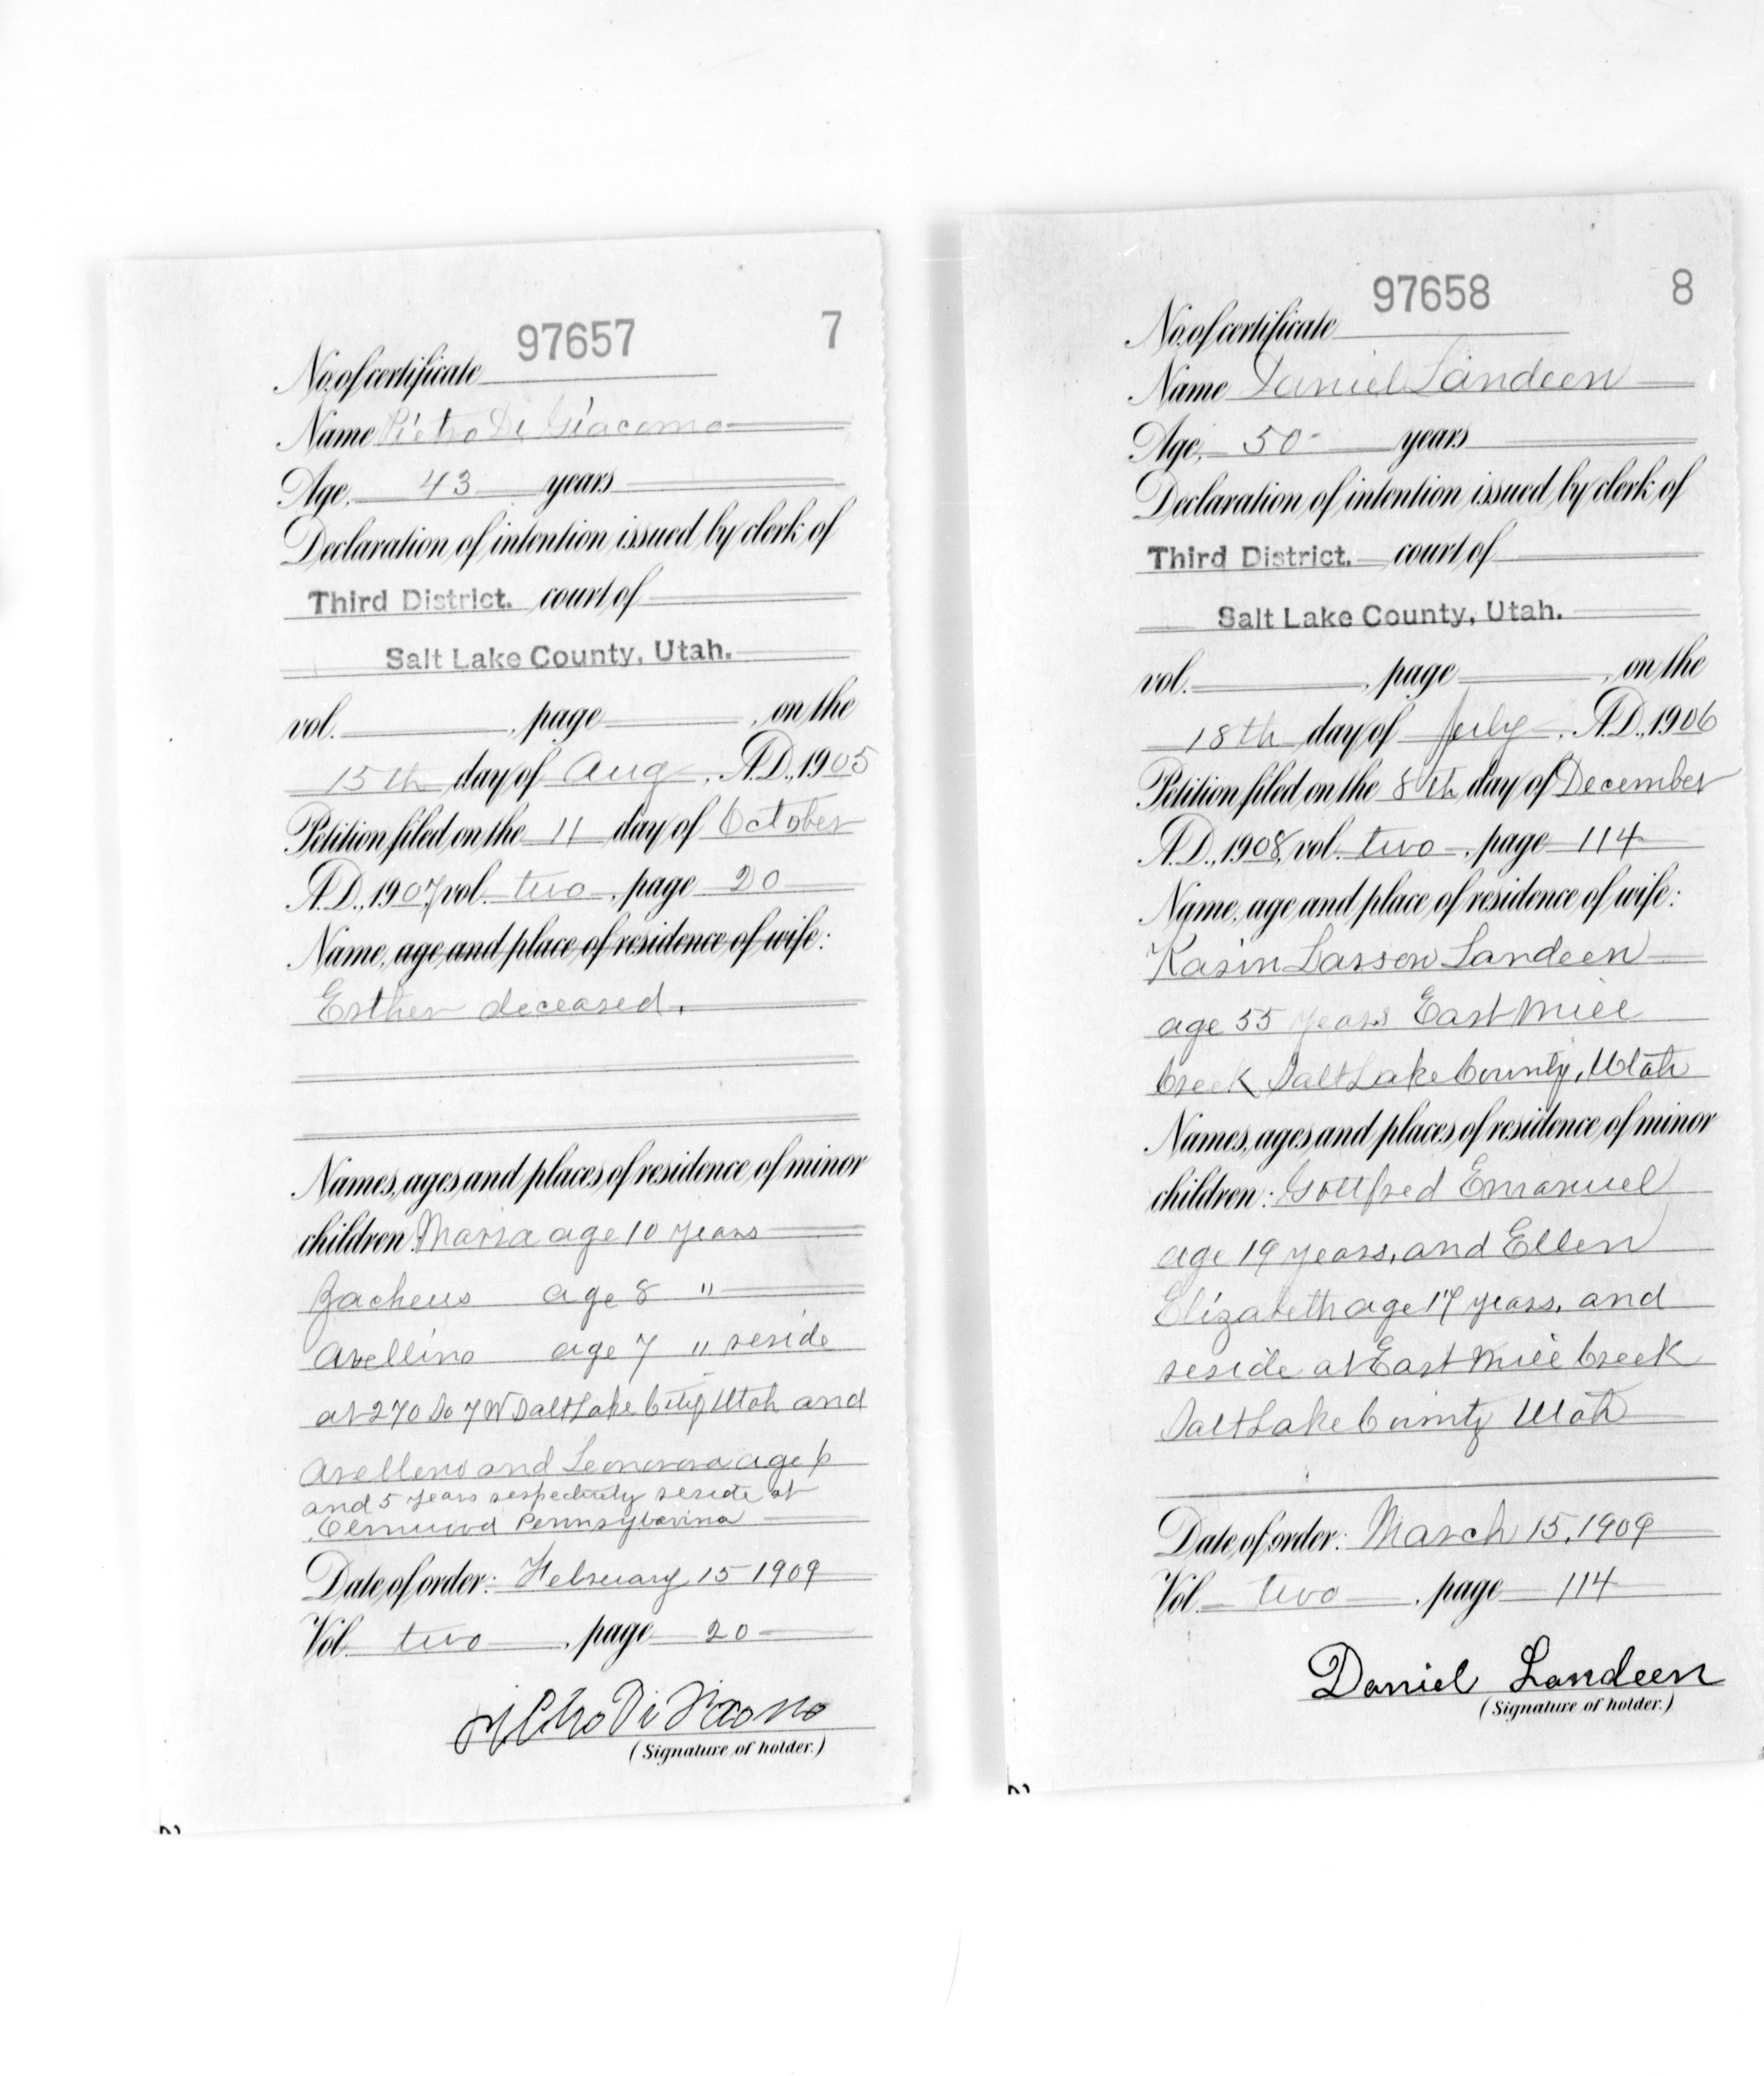 97657 7
No. of certificate
Name Pietro Di Giacomo
Age, 43 years
Declaration of intention issued by clerk of
Third District. court of
Salt Lake County, Utah.
vol. , page , on the
15th day of Aug , A.D., 1905
Petition filed on the 11 day of October
A.D., 1907, vol. two , page 20
Name, age and place of residence of wife:
Esther deceased.
Names, ages and places of residence of minor
children Maria age 10 years
Zacheus age 8 "
Avellino age 7 " reside
at 270 So 7 W Salt Lake City Utah and
Avelleno and Leonora age 6
and 5 years respectively reside at
Pennsylvania
Date of order: February 15 1909
Vol. two , page 20
(Signature of holder.)
97658 8
No. of certificate
Name Daniel Landeen
Age, 50 - years
Declaration of intention issued by clerk of
Third District. court of
Salt Lake County, Utah.
vol. , page , on the
18th day of July , A.D., 1906
Petition filed on the 8th day of December
A.D., 1908, vol. two , page 114
Name, age and place of residence of wife:
Karin Larson Landeen
age 55 years East Mill
Creek Salt Lake County, Utah
Names, ages and places of residence of minor
children: Gottfred Emanuel
age 19 years, and Ellen
Elizabeth age 17 years, and
reside at East Mill Creek
Salt Lake County Utah
Date of order: March 15, 1909
Vol. two , page 114
Daniel Landeen
(Signature of holder.)